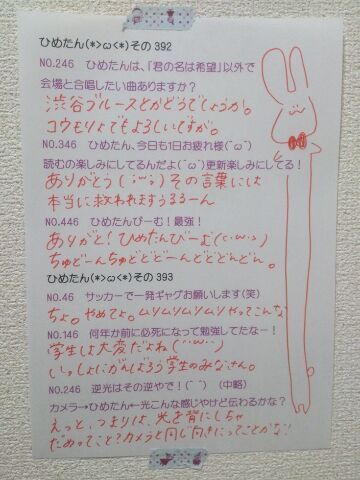 ひめたん(*>ω<*)その 392
NO.246　ひめたんは、「君の名は希望」以外で
会場と合唱したい曲ありますか？
渋谷ブルースとかどうでしょうか。
コウモリよでもよろしいですが。
NO.346　ひめたん、今日も1日お疲れ様(´ω`)
読むの楽しみにしてるんだよ(´ω`)更新楽しみにしてる！
ありがとう(;ω;)その言葉には
本当に救われますうるるーん
NO.446　ひめたんびーむ！最強！
ありがと！ひめたんびーむ(c・ω・)
ちゅどーんちゅどどどーんどどどんどん。
ひめたん(*>ω<*)その 393
NO.46　サッカーで一発ギャグお願いします(笑)
ちょ。やめてょ。ムリムリムリムリやってこんな
NO.146　何年か前に必死になって勉強してたなー！
学生は大変だよね(´・ω・`)
いっしょにがんばろう学生のみなさん。
NO.246　逆光はその逆やで！(ˆˆ)　(中略)
カメラ→ひめたん←光こんな感じやけど伝わるかな？
えっと、つまりは、光を背にしちゃ
だめってこと？カメラと同じ向きにってことかな